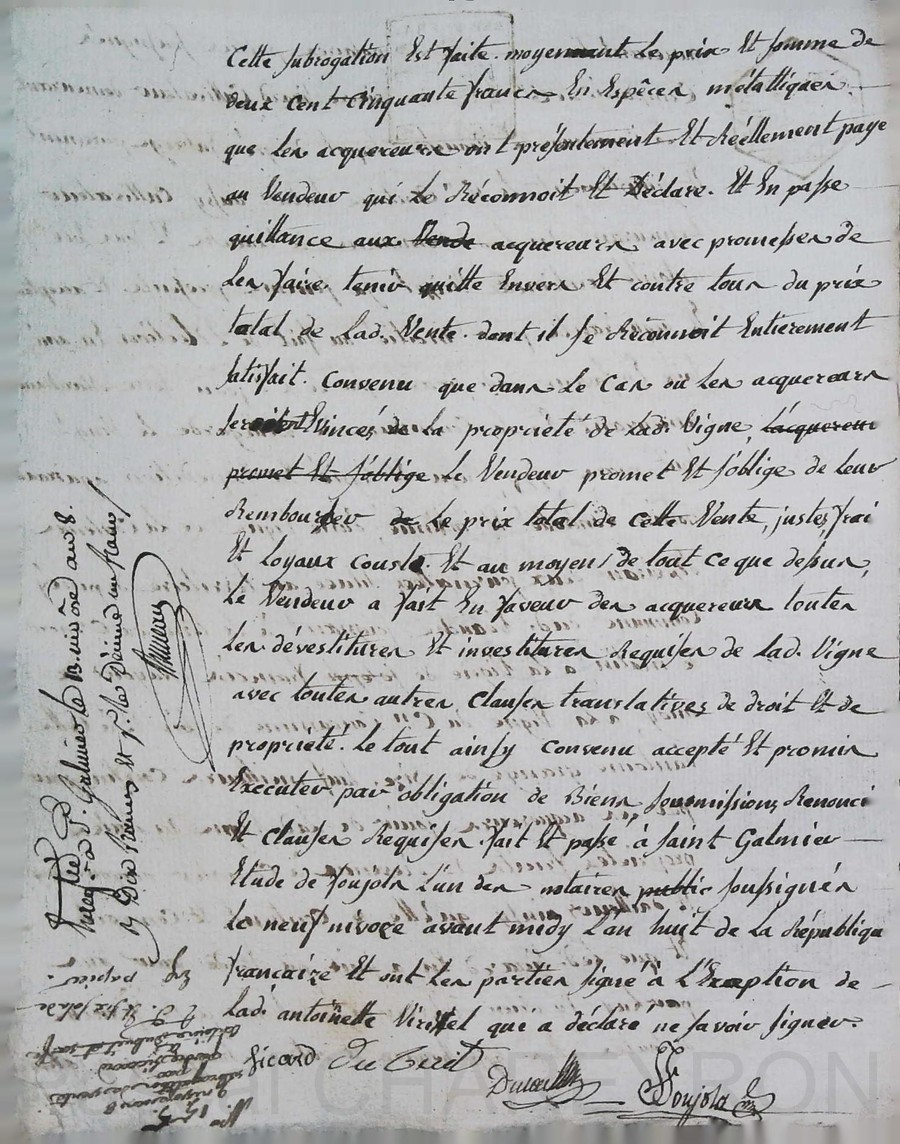 Cette subrogation Est faite moyennant Le prix Et somme de
deux cent cinquante francs En Espêces métalliques
que les acquereurs ont présentement Et Réellement payé
au Vendeur qui Le Réconnoit Et Déclare. Et En passe
quittance aux Vende acquereurs avec promesses de
les faire tenir quitte Envers Et contre tous du prix
total de lad. Vente. dont il se Réconnoit Entierement
satisfait. Convenu que dans Le Cas ou les acquereurs
Evincés de la propriété de Lad. Vigne, L'acquereur
promet Et s'oblige Le Vendeur promet Et s'oblige de leur
Rembourser de Le prix total de Cette Vente, justes frai
Et Loyaux cousts. Et au moyens de tout ce que dessus,
Le Vendeur a fait En faveur des acquereurs toutes
les dévestitures Et investitures Requises de Lad. Vigne
avec toutes autres Clauses translatives de droit Et de
propriété. Le tout ainsy convenu accepté Et promis
Executer par obligation de Biens soumissions Renonci
Et Clauses Requises. fait Et passé à Saint Galmier
Etude de Soujols L'un des notaires public soussignés
le neuf nivoze avant midy L'an huit de la République
francaize Et ont les parties signé à L'Exception de
Lad. antoinette qui a déclaré ne savoir signer.
Sicard
Soujols
Galmier le 13 nivôse an 8.
dix francs Et p. le Décime un franc
papier